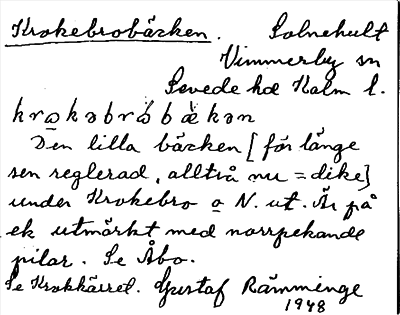 Krokebrobäcken. Solnehult
Vimmerby sn
Sevede hd Kalm l.
kro̱kəbrǻbàkən
Den lilla bäcken [för länge
sen reglerad, alltså nu = dike]
under Krokebro o N. ut. Är på
ek utmärkt med norrpekande
pilar. Se Åbo.
Se Krokkärret. Gustaf Rämminge
1948